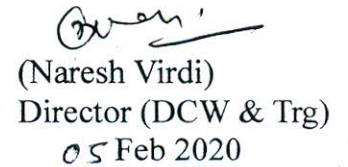 (Naresh Virdi)
Director (DCW & Trg)
05 Feb 2020